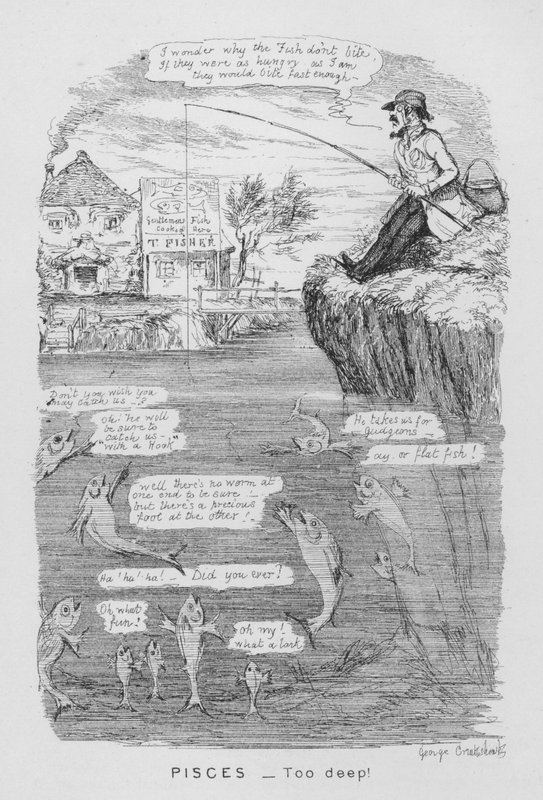 I wonder why the Fish don't bite,
If they were as hungry as I am
they would bite fast enough—
Gentlemens Fish
Cooked Here
T. FISHER
Don't you wish you
may catch us—?
Oh! he will
be sure to
"catch us—
with a Hook"
He takes us for
Gudgeons—
ay. or flat fish!
well there's no worm at
one end to be sure!—
but there's a precious
fool at the other!
Ha! ha! ha!— Did you ever?
Oh, what
fun!
Oh my!
what a lark
George Cruikshank
PISCES — Too deep!